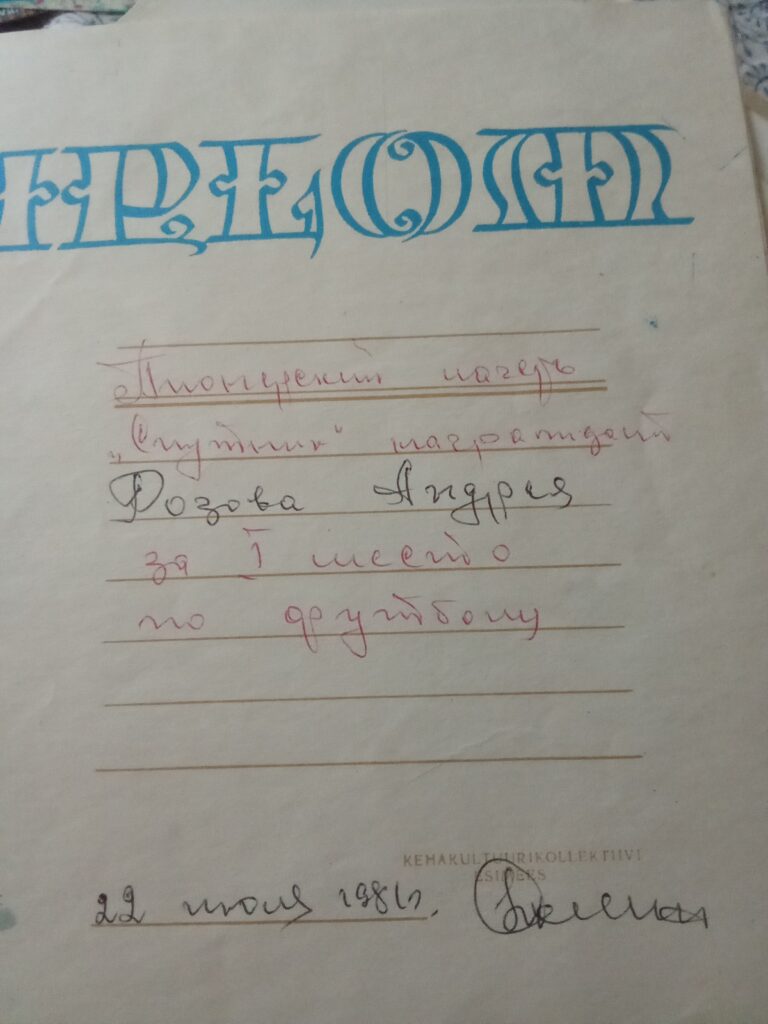 DIPLOM
Пионерский лагерь
„Спутник" награждает
Розова Андрея
за I место
по футболу
KEHAKULTUURIKOLLEKTIIVI
ESIMEES
22 июля 1981г.